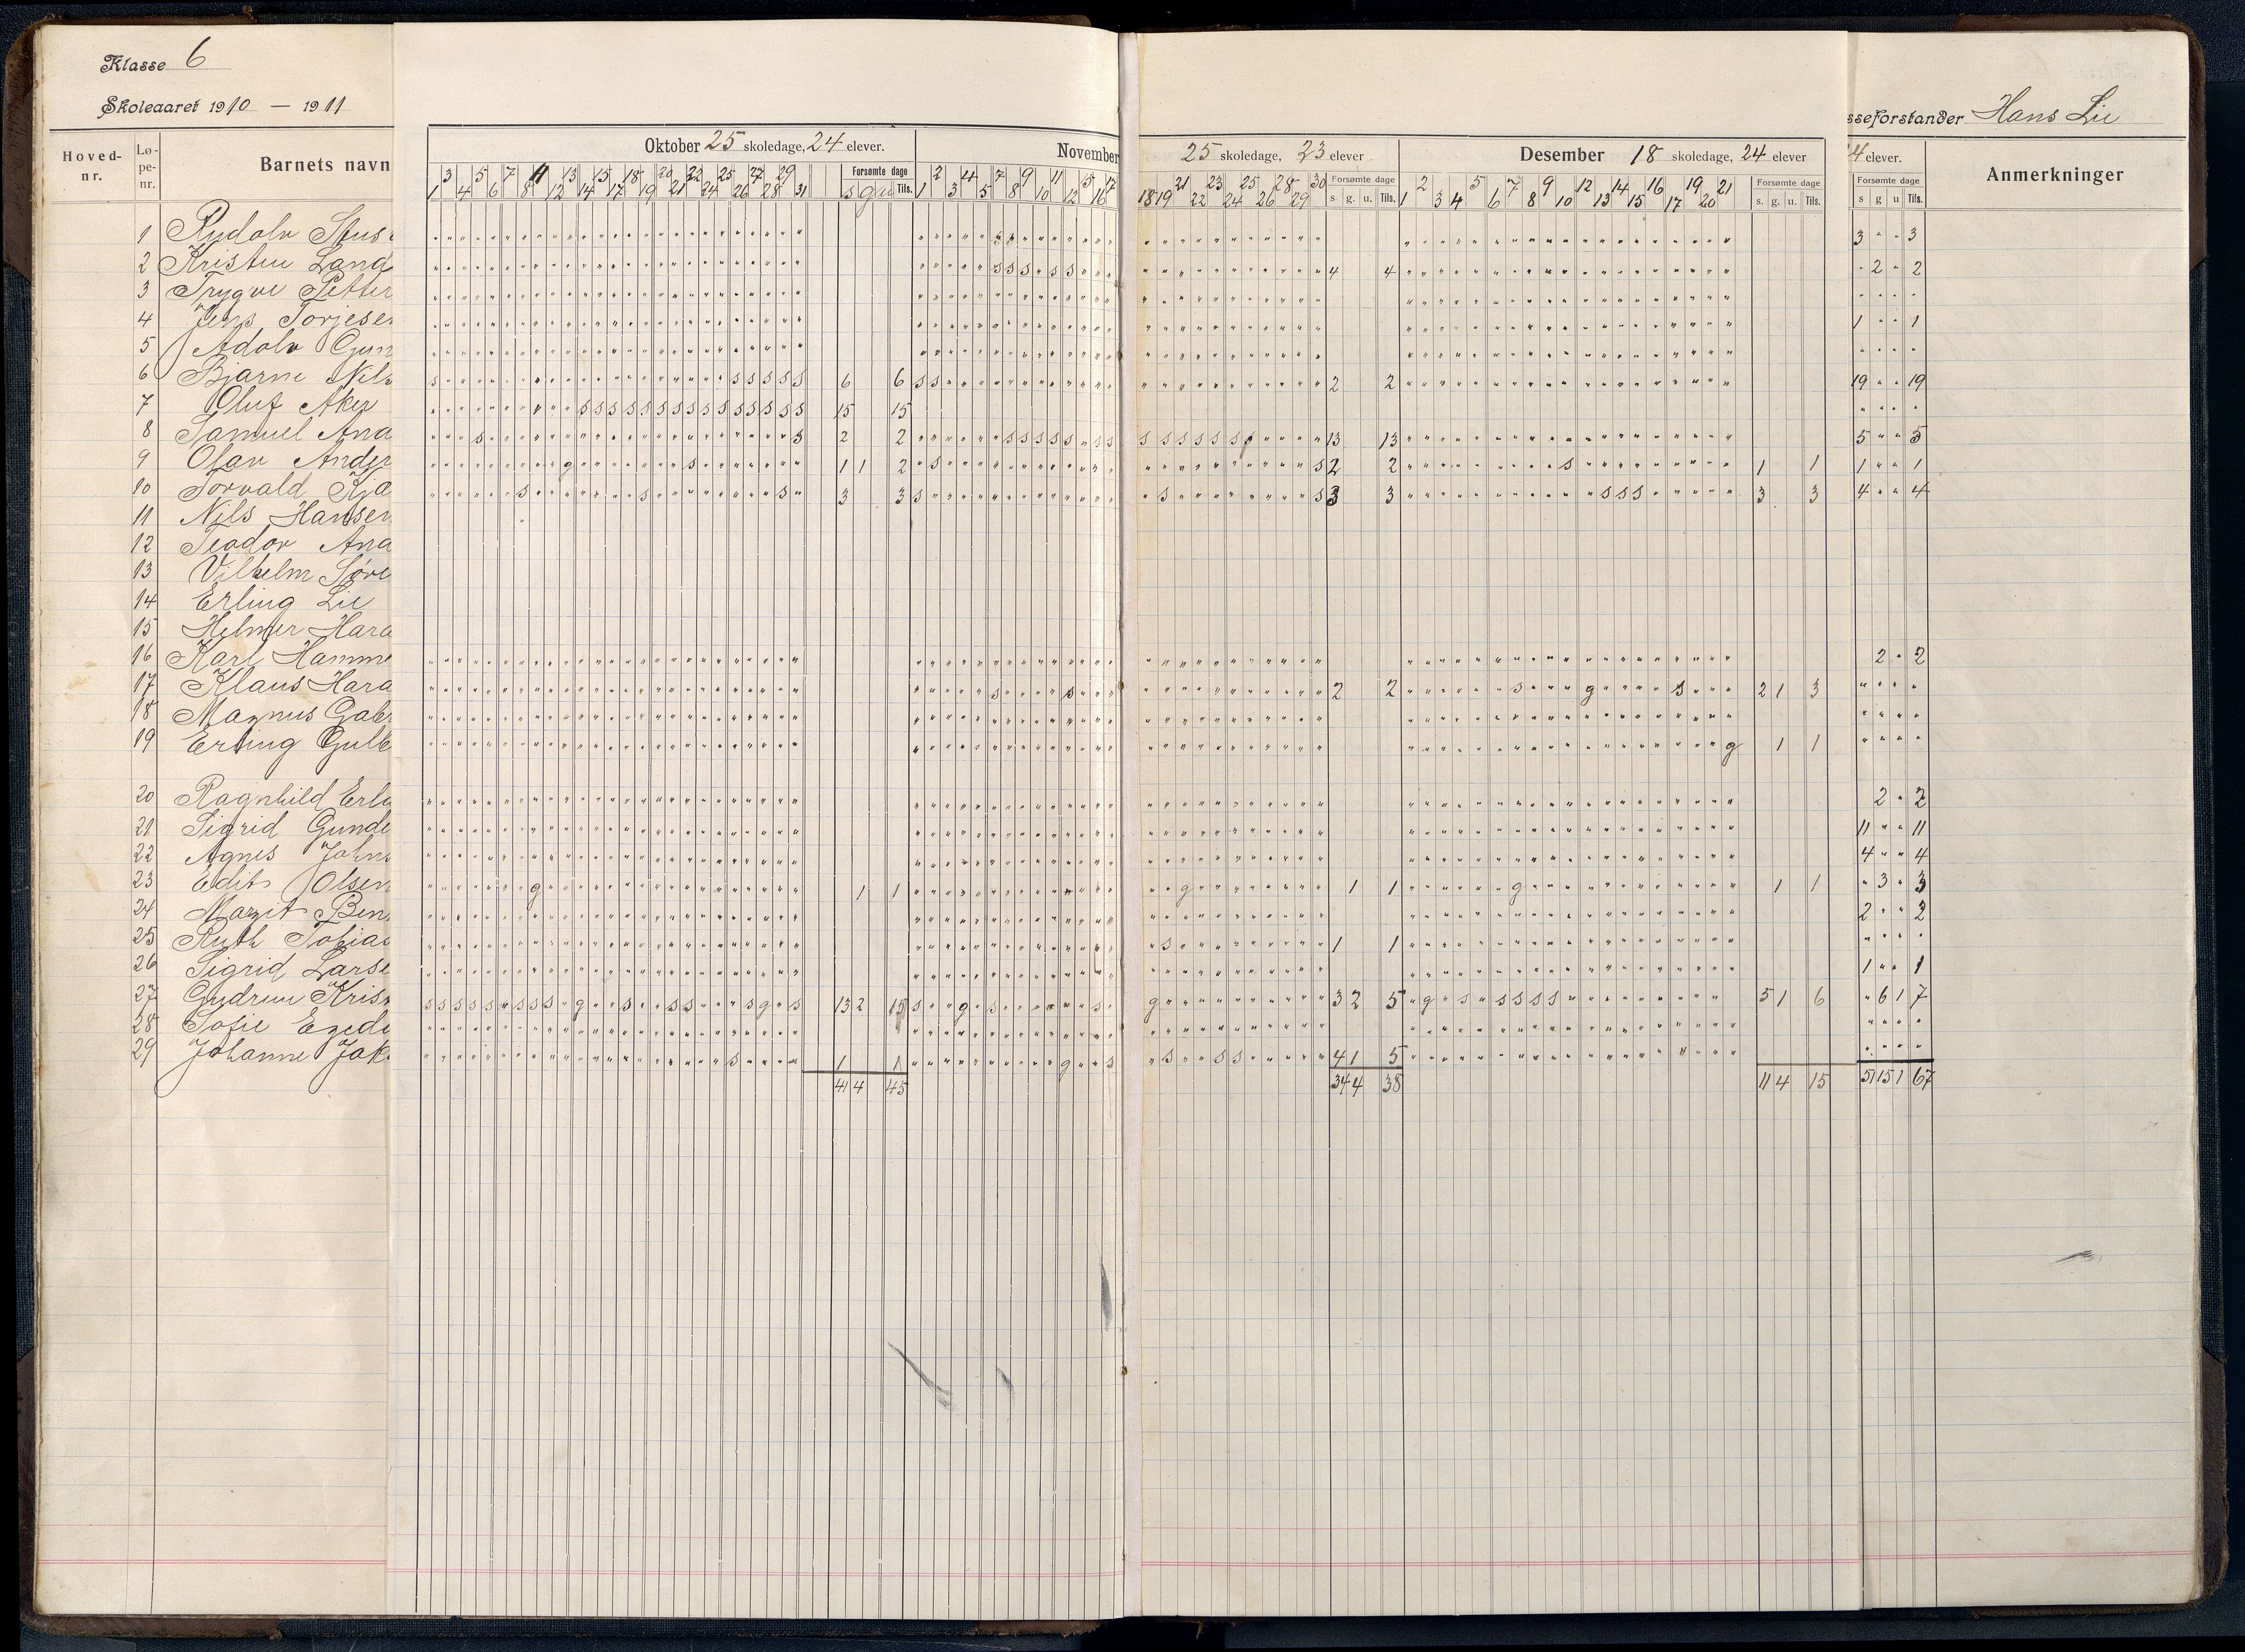 Klasse 6
Skoleaaret 1910 — 1911
Klasseforstander Hans Lie
Hoved-nr.
Lø-pe-nr.
Barnets navn
Oktober 25 skoledage, 24 elever.
November 25 skoledage, 23 elever
Desember 18 skoledage, 24 elever
24 elever.
Anmerkninger
1 3 4 5 6 7 8 11 12 13 14 15 17 18 19 20 21 22 24 25 26 27 28 29 31
Forsømte dage s g u Tils.
1 2 3 4 5 7 8 9 10 11 12 15 16 17
18 19 21 22 23 24 25 26 28 29 30
Forsømte dage s. g. u. Tils.
1 2 3 4 5 6 7 8 9 10 12 13 14 15 16 17 19 20 21
Forsømte dage s. g. u. Tils.
Forsømte dage s g u Tils.
1 Rudolv 3 " " 3
2 Kristen Land s s s s s 4 4 " 2 " 2
3 Trygve Petter
4 Jens Torjesen 1 " " 1
5 Adolv Gun
6 Bjarne Nils s s s s s s 6 6 s s 2 2 19 " " 19
7 Oluf Aker s s s s s s s s s s s s s s s 15 15
8 Samuel And s s 2 2 s s s s s s s s s s s s s 13 13 5 " " 5
9 Olav Ander g s 1 1 2 s s 2 2 s 1 1 1 " " 1
10 Torvald Kja s s s 3 3 s s s 3 3 s s s 3 3 4 " " 4
11 Nils Hansen
12 Teodor And
13 Vilhelm Søre
14 Erling Lie
15 Helmer Hara
16 Karl Hamme 2 " 2
17 Klaus Hara s s 2 2 s g s 2 1 3
18 Magnus Gabr
19 Erling Gulb g 1 1
20 Ragnhild Erla 2 " 2
21 Sigrid Gunde 11 " " 11
22 Agnes Johns 4 " " 4
23 Edit Olsen g 1 1 g 1 1 g 1 1 " 3 " 3
24 Margit Ben 2 " " 2
25 Ruth Tobias s 1 1
26 Sigrid Larse 1 " " 1
27 Gudrun Kris s s s s s s s s g s s s s g s 13 2 15 s g s s g 3 2 5 g s s s s s 5 1 6 " 6 1 7
28 Sofie Egede
29 Johanne Jak s 1 1 g s s s s 4 1 5
41 4 45 34 4 38 11 4 15 51 15 1 67